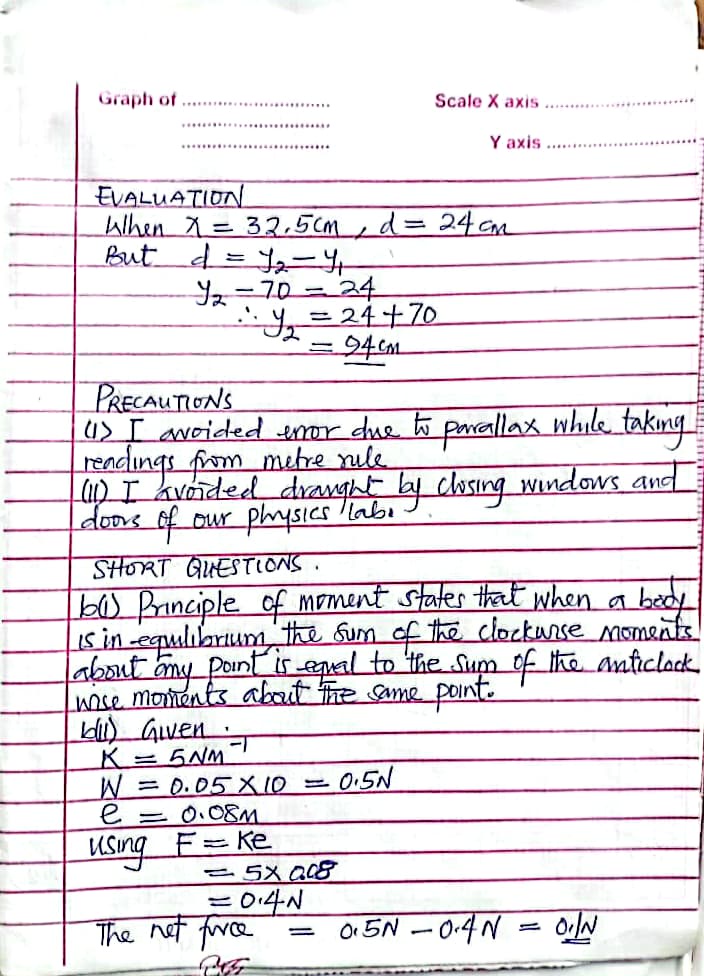 Graph of ..............................
Scale X axis ..............................
Y axis ..............................
EVALUATION
When x = 32.5cm, d = 24cm
But d = y₂ - y₁
y₂ - 70 = 24
∴ y₂ = 24 + 70
= 94cm
PRECAUTIONS
(i) I avoided error due to parallax while taking
readings from metre rule
(ii) I avoided draught by closing windows and
doors of our physics lab.
SHORT QUESTIONS.
b(i) Principle of moment states that when a body
is in equilibrium, the sum of the clockwise moments
about any point is equal to the sum of the anticlock
wise moments about the same point.
b(ii) Given :
K = 5NM⁻¹
W = 0.05 X 10 = 0.5N
e = 0.08M
using F = Ke
= 5 X 0.08
= 0.4N
The net force = 0.5N - 0.4N = 0.1N